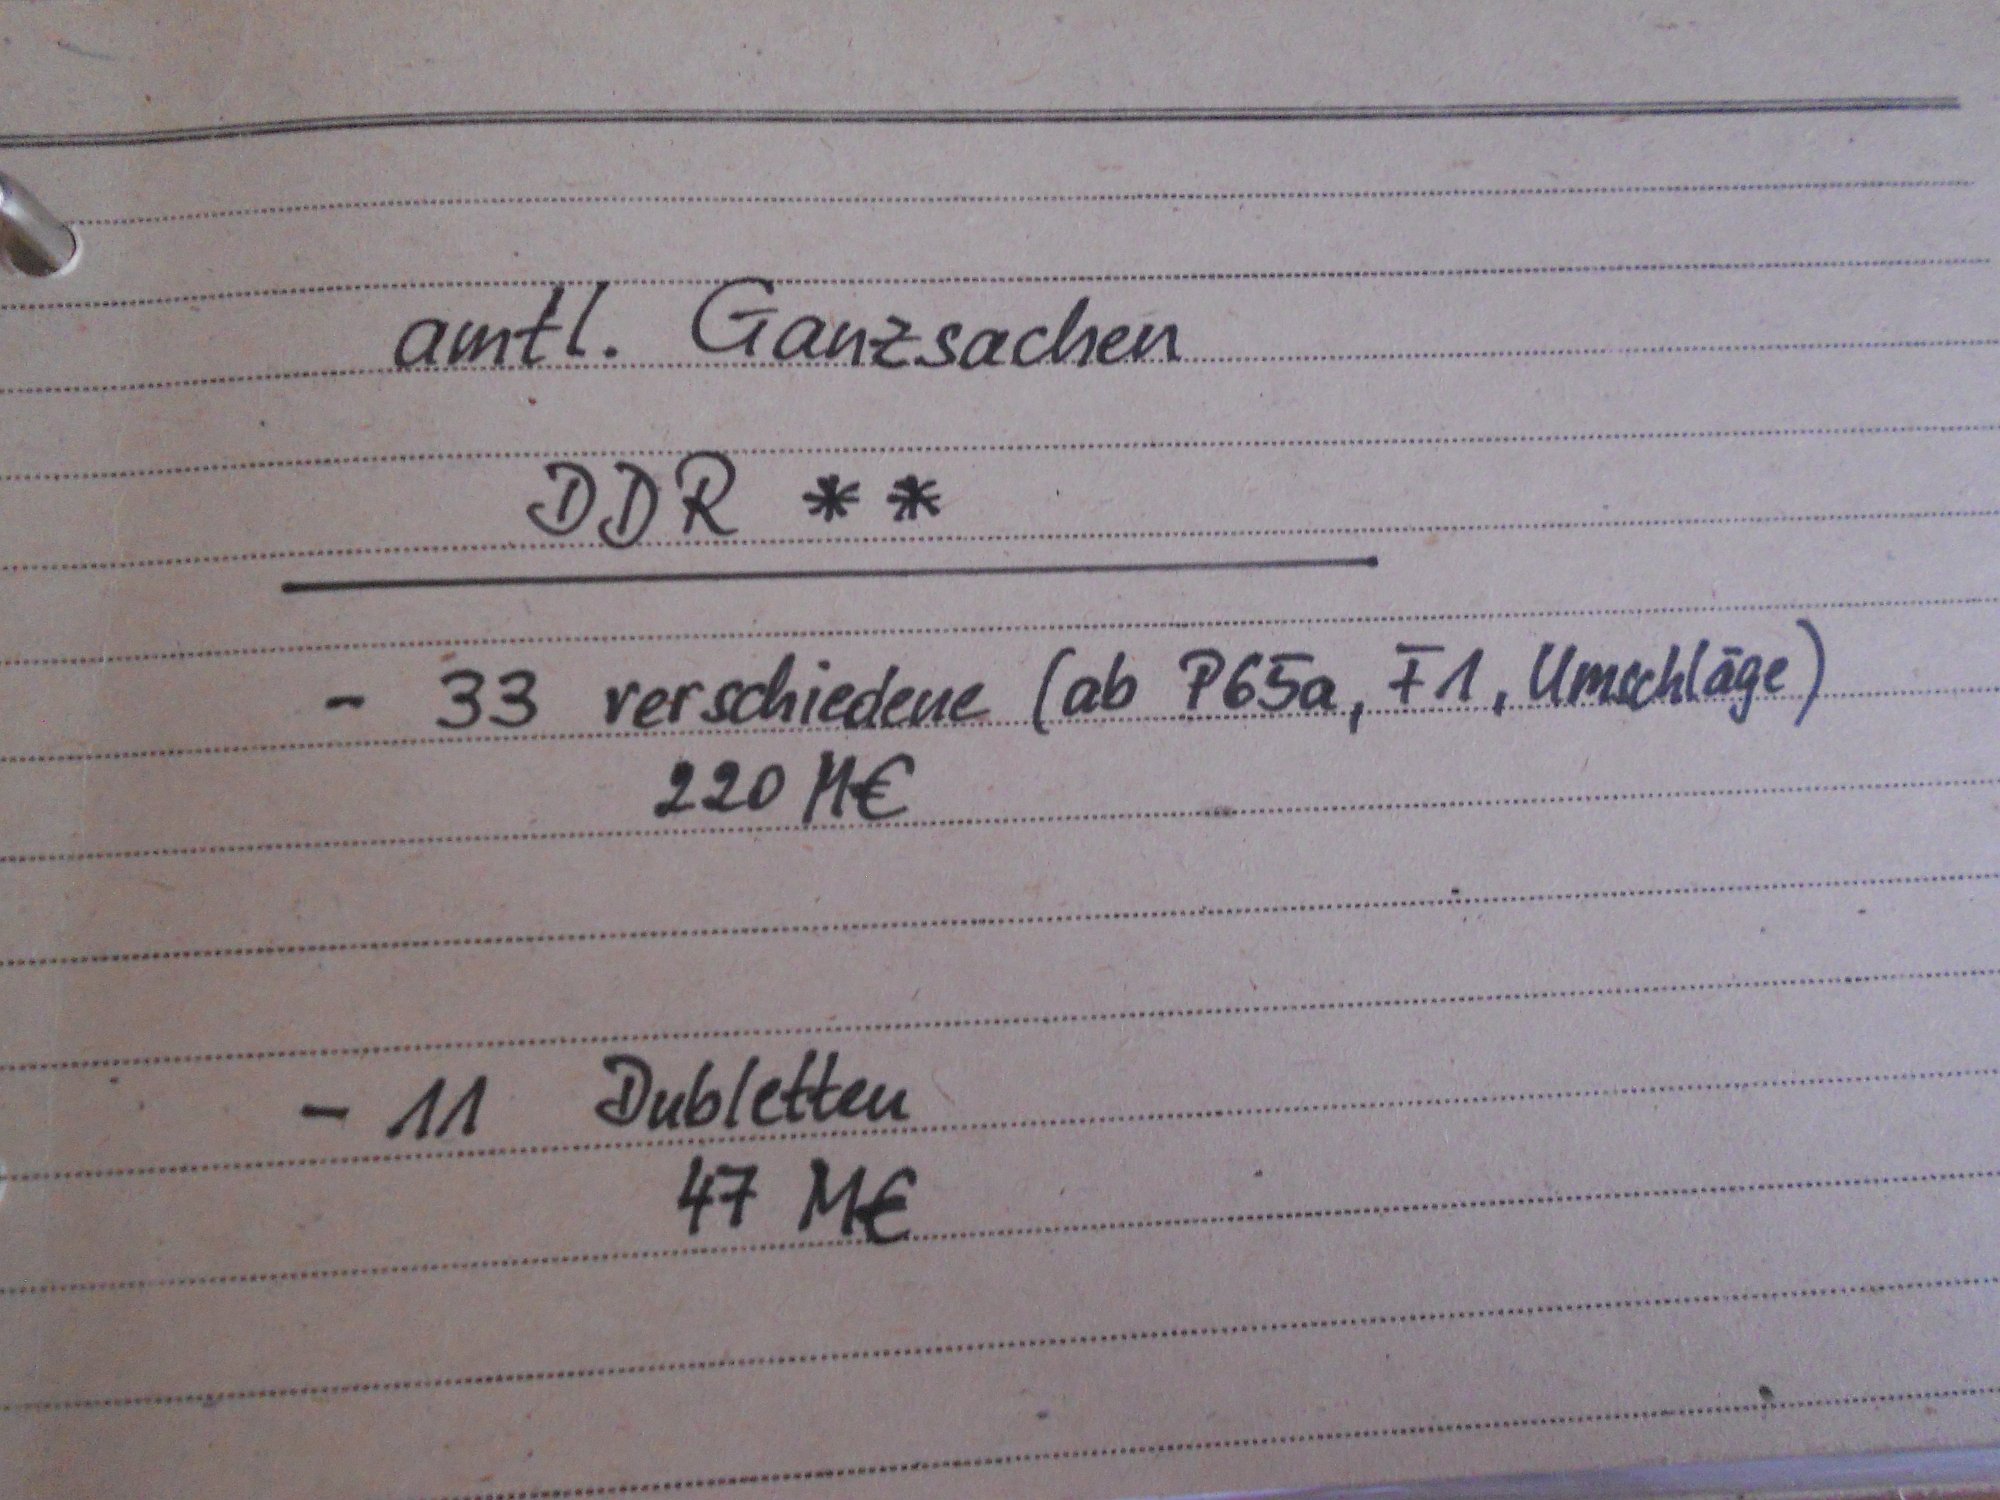 amtl. Ganzsachen
DDR **
- 33 verschiedene (ab P65a, F1, Umschläge)
220 M€
- 11 Dubletten
47 M€